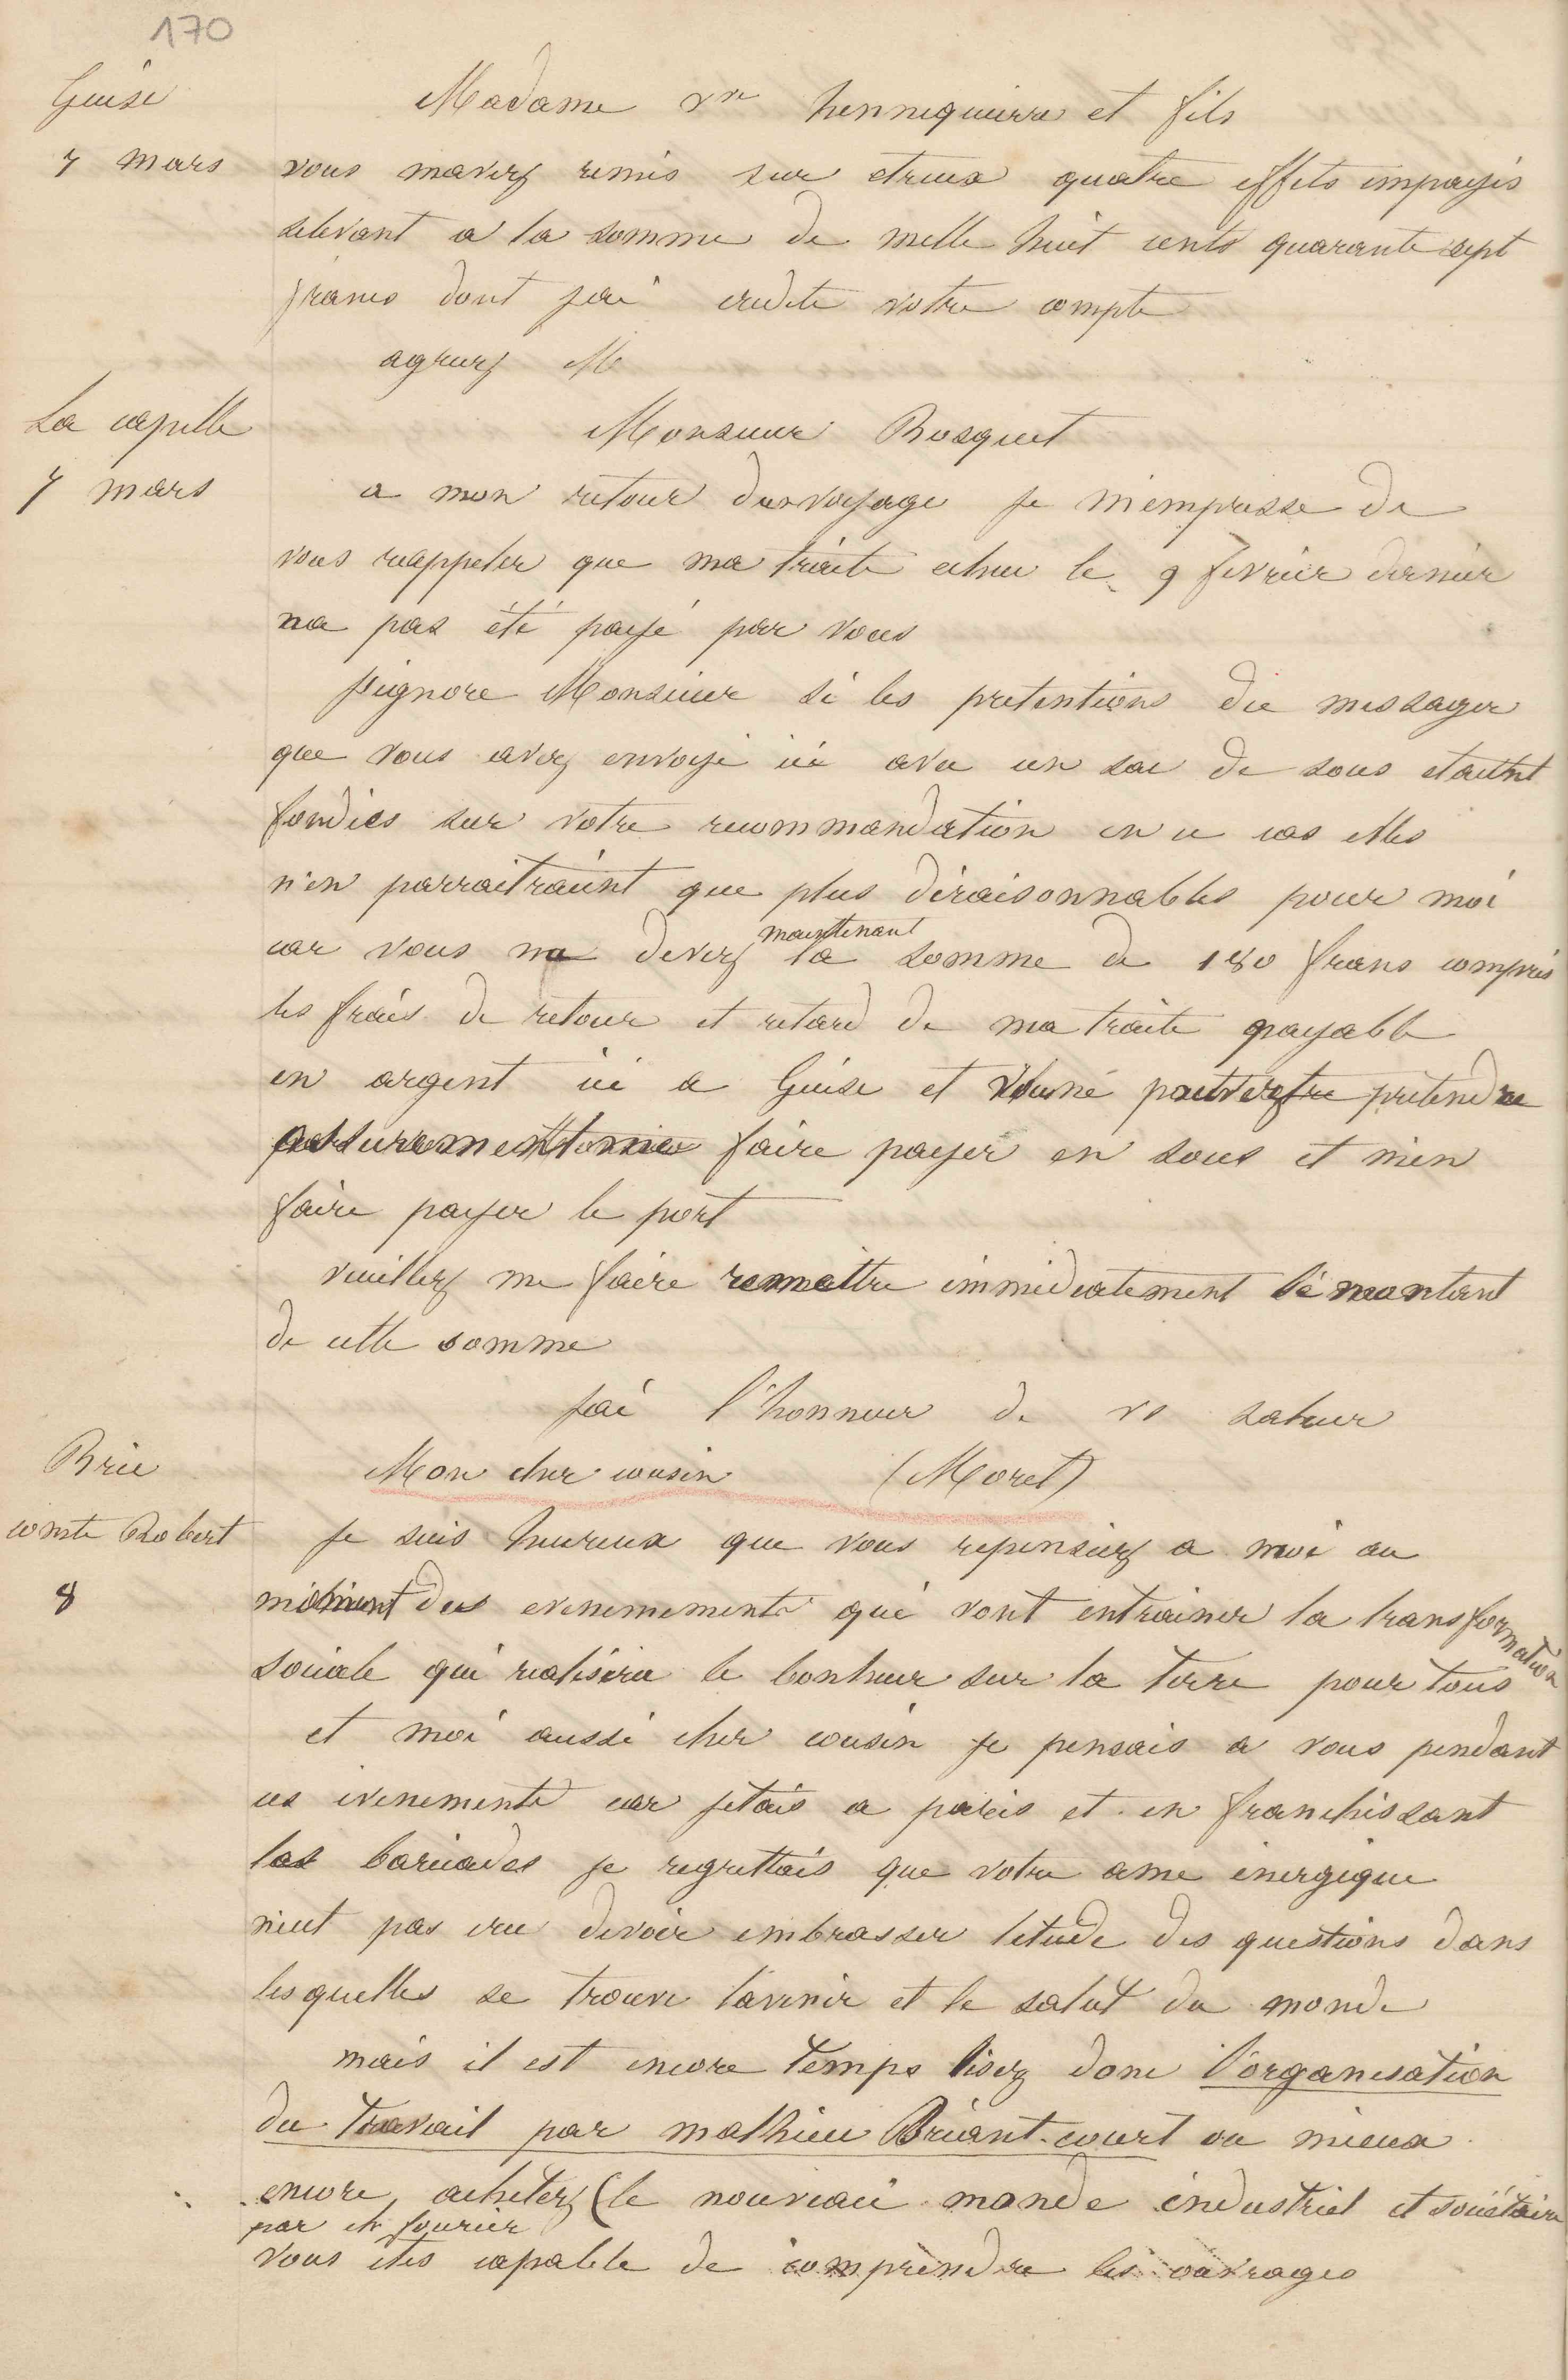 170
Guise
7 mars
Madame Vve hennequierre et fils
vous mavez remis sur etreux quatre effets impayés
selevant a la somme de mille huit cents quarante sept
francs dont jai credité votre compte
agreez M
La capelle
7 mars
Monsieur Bosquet
a mon retour de voyage je m'empresse de
vous reappeler que ma traite echue le 9 fevrier dernier
na pas été payé par vous
jignore Monsieur si les pretentions du messager
que vous avez envoyé ici avec un sac de sous etaient
fondées sur votre recommandation en ce cas elles
n'en parraitraient que plus déraisonnables pour moi
car vous me devez maintenant la somme de 180 frans compris
les frais de retour et retard de ma traite payable
en argent ici a Guise et vous ne pouvez pretendre
assurement me faire payer en sous et men
faire payer le port
veuillez me faire remettre immédiatement le montant
de cette somme
jai l'honneur de vs saluer
Brie
comte Robert
8
Mon cher cousin (Moret)
Je suis heureux que vous repensiez a moi au
moment des evenemements qui vont entrainer la transformation
sociale qui realisera le bonheur sur la terre pour tous
et moi aussi cher cousin je pensais a vous pendant
ces evenements car jetais a paris et en franchissant
les baricades je regrettais que votre ame énergique
neut pas cru devoir embrasser letude des questions dans
lesquelles se trouve l'avenir et le salut du monde
mais il est encore temps lisez donc l'organisation
du travail par mathieu Briant-court ou mieux
encore achetez (le nouveau monde industriel et sociétaire
par ch fourier
vous etes capable de comprendre les ouvrages